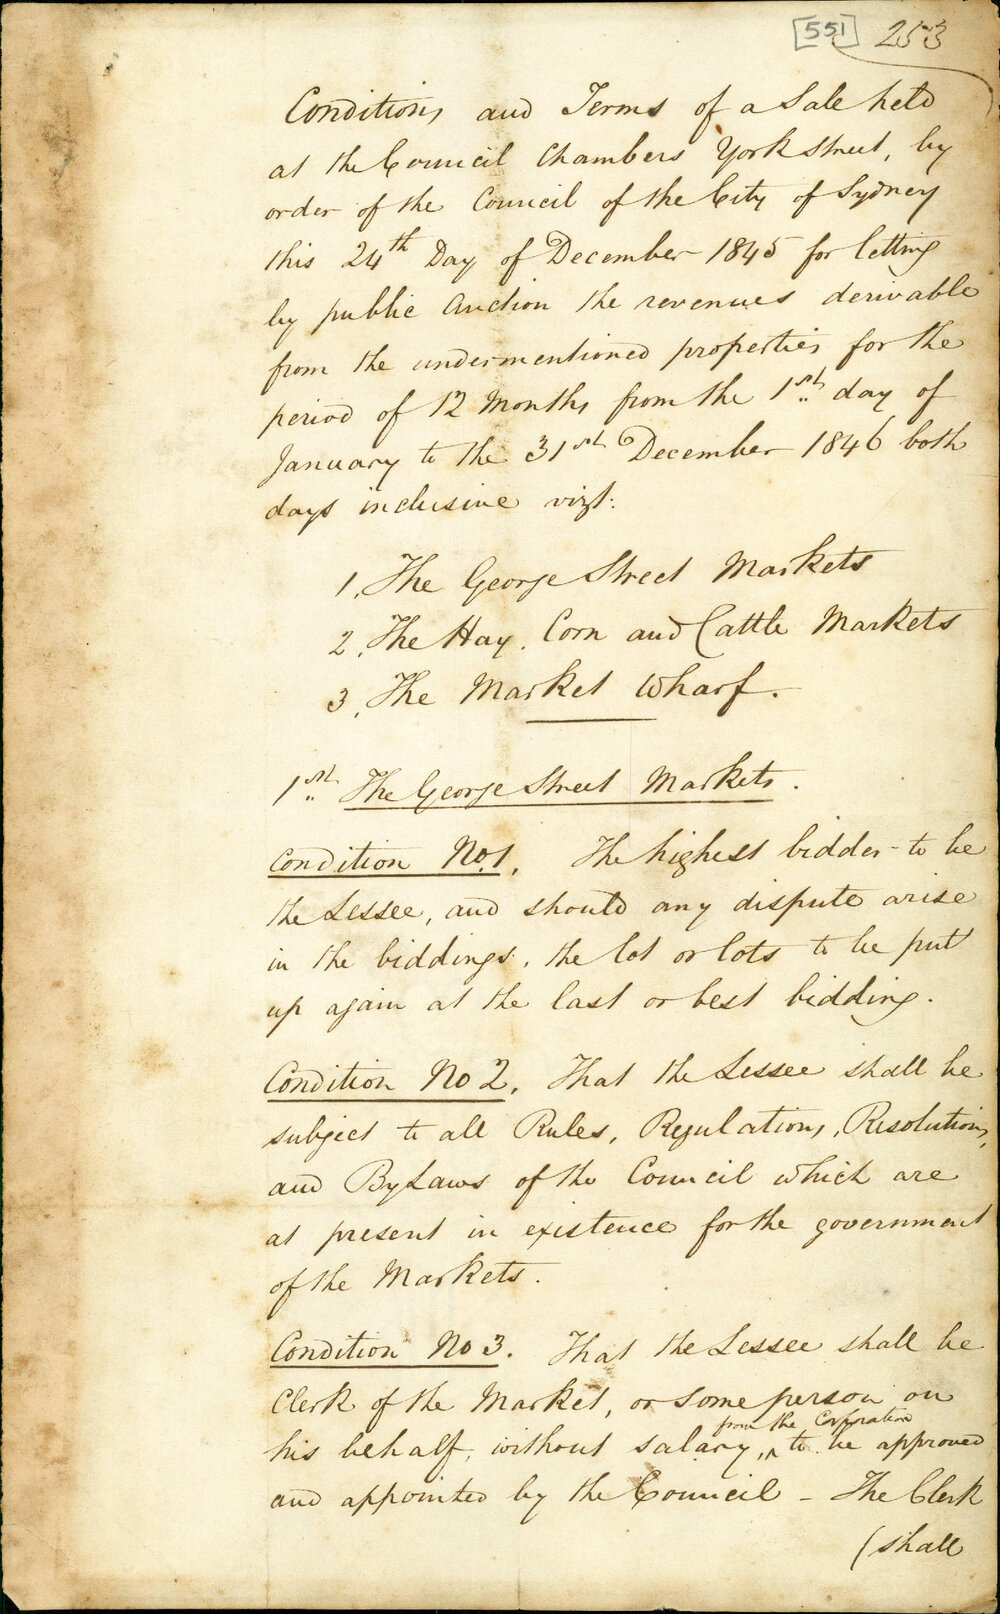 [551] 253
Conditions and Terms of a Sale held
at the Council Chambers York Street, by
order of the Council of the City of Sydney
this 24th Day of December 1845 for letting
by public Auction the revenues derivable
from the undermentioned properties for the
period of 12 Months from the 1st day of
January to the 31st December 1846 both
days inclusive vizt:
1. The George Street Markets
2. The Hay, Corn and Cattle Markets
3. The Market Wharf.
1st The George Street Markets.
Condition No 1. The highest bidder to be
the Lessee, and should any dispute arise
in the biddings, the lot or lots to be put
up again at the last or best bidding.
Condition No 2. That the Lessee shall be
subject to all Rules, Regulations, Resolutions,
and ByLaws of the Council which are
at present in existence for the government
of the Markets.
Condition No 3. That the Lessee shall be
Clerk of the Market, or some person on
from the Corporation
his behalf, without salary, ^ to be approved
and appointed by the Council – The Clerk
(shall